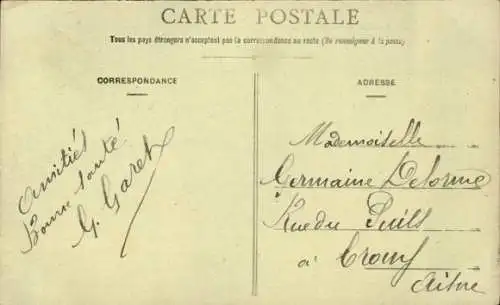 CARTE POSTALE
Tous les pays étrangers n'acceptent pas la correspondance au recto (Se renseigner à la poste)
CORRESPONDANCE
ADRESSE
Amitiés
Bonne santé
G. Garet
Mademoiselle
Germaine Delorme
Rue du Puits
à Crouy
Aisne